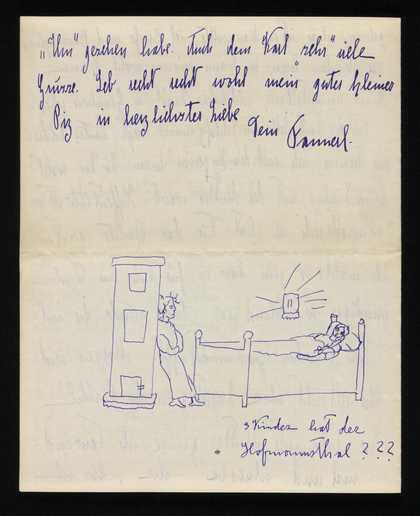 gesehen habe. Auch dem Karl sehr viele
Grüsse. Leb recht recht wohl mein gutes kleines
in herzlichster Liebe
Dein
3 Kinder hat der
Hofmannsthal ? ? ?